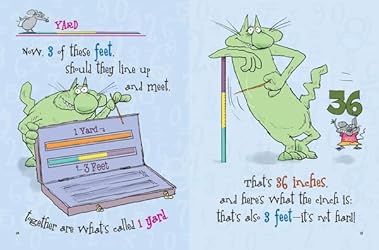 YARD
Now, 3 of these feet,
should they line up
and meet,
1 Yard
3 Feet
together are what's called 1 yard.
36
That's 36 inches,
and here's what the clinch is:
that's also 3 feet—it's not hard!